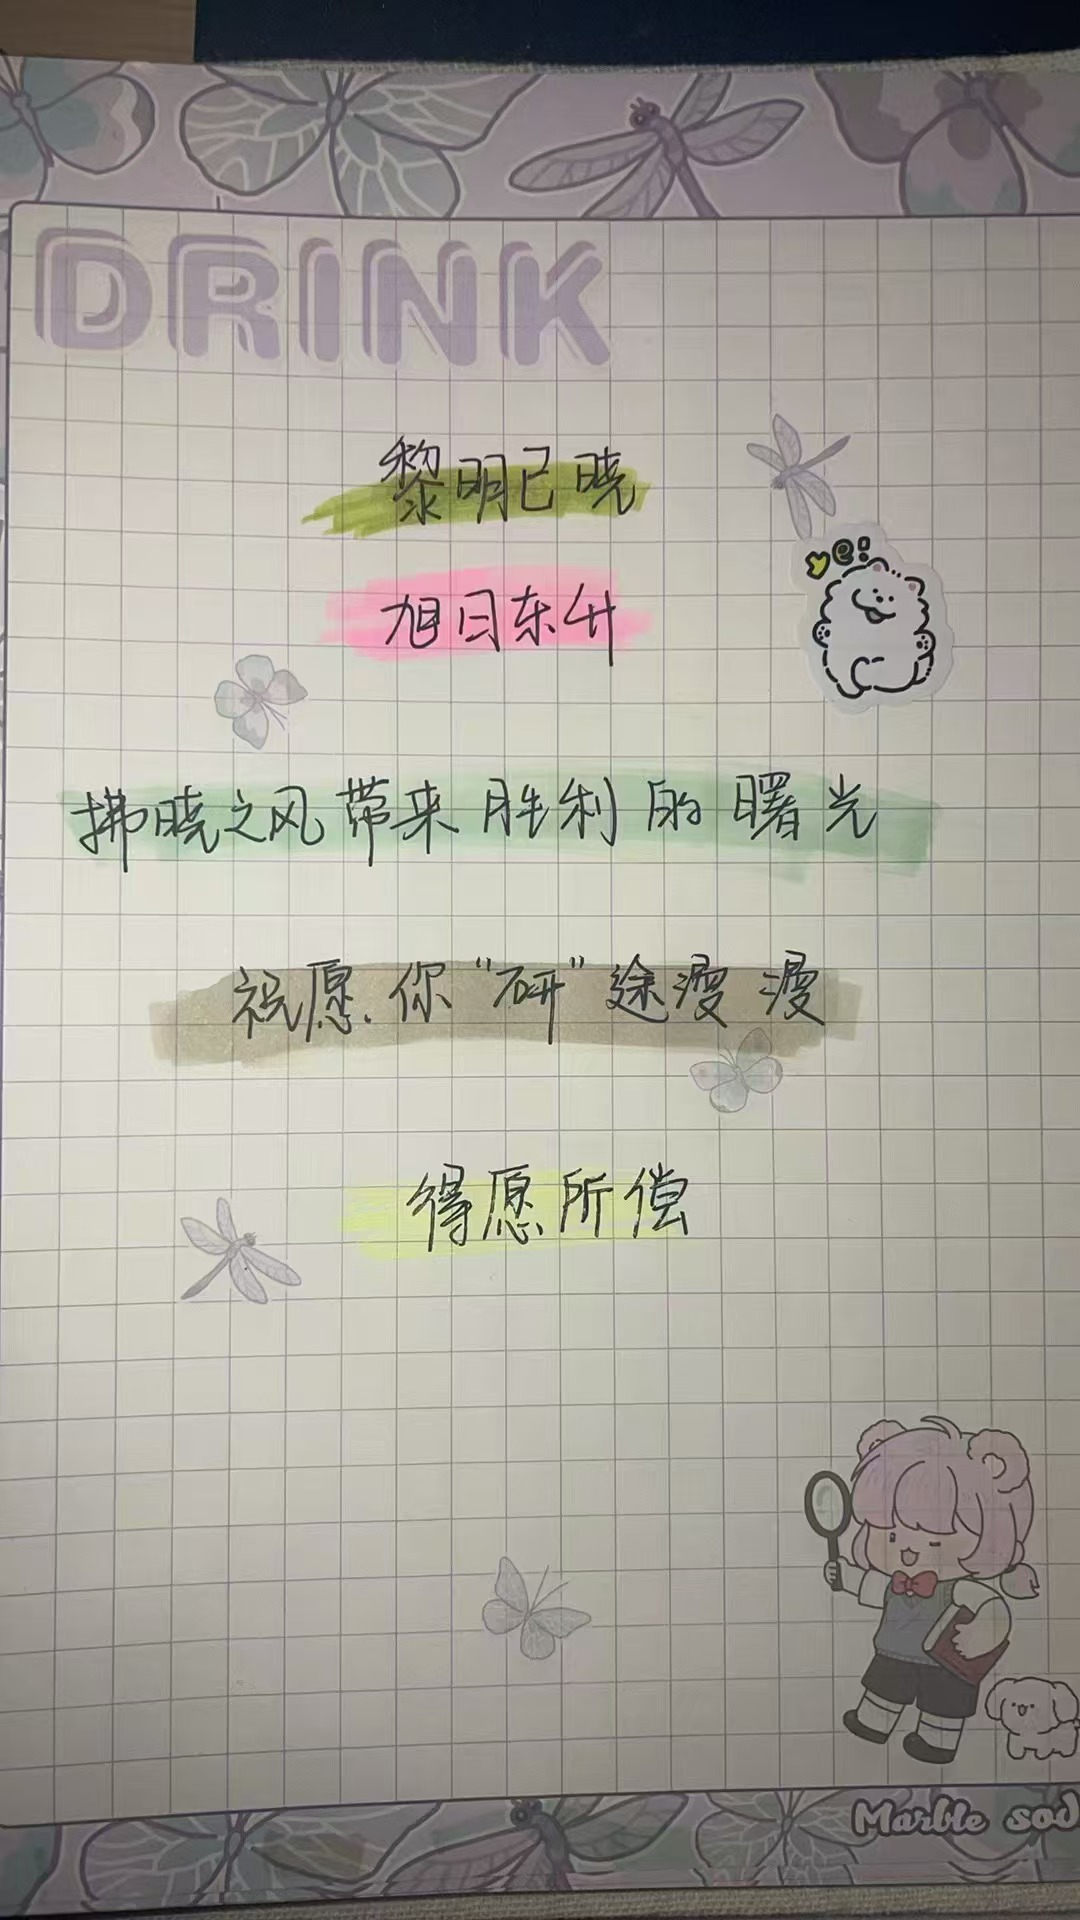 DRINK
e!
黎明已晓
旭日东升
拂晓之风带来胜利的曙光
祝愿你“研”途漫漫
得愿所偿
Marble sod